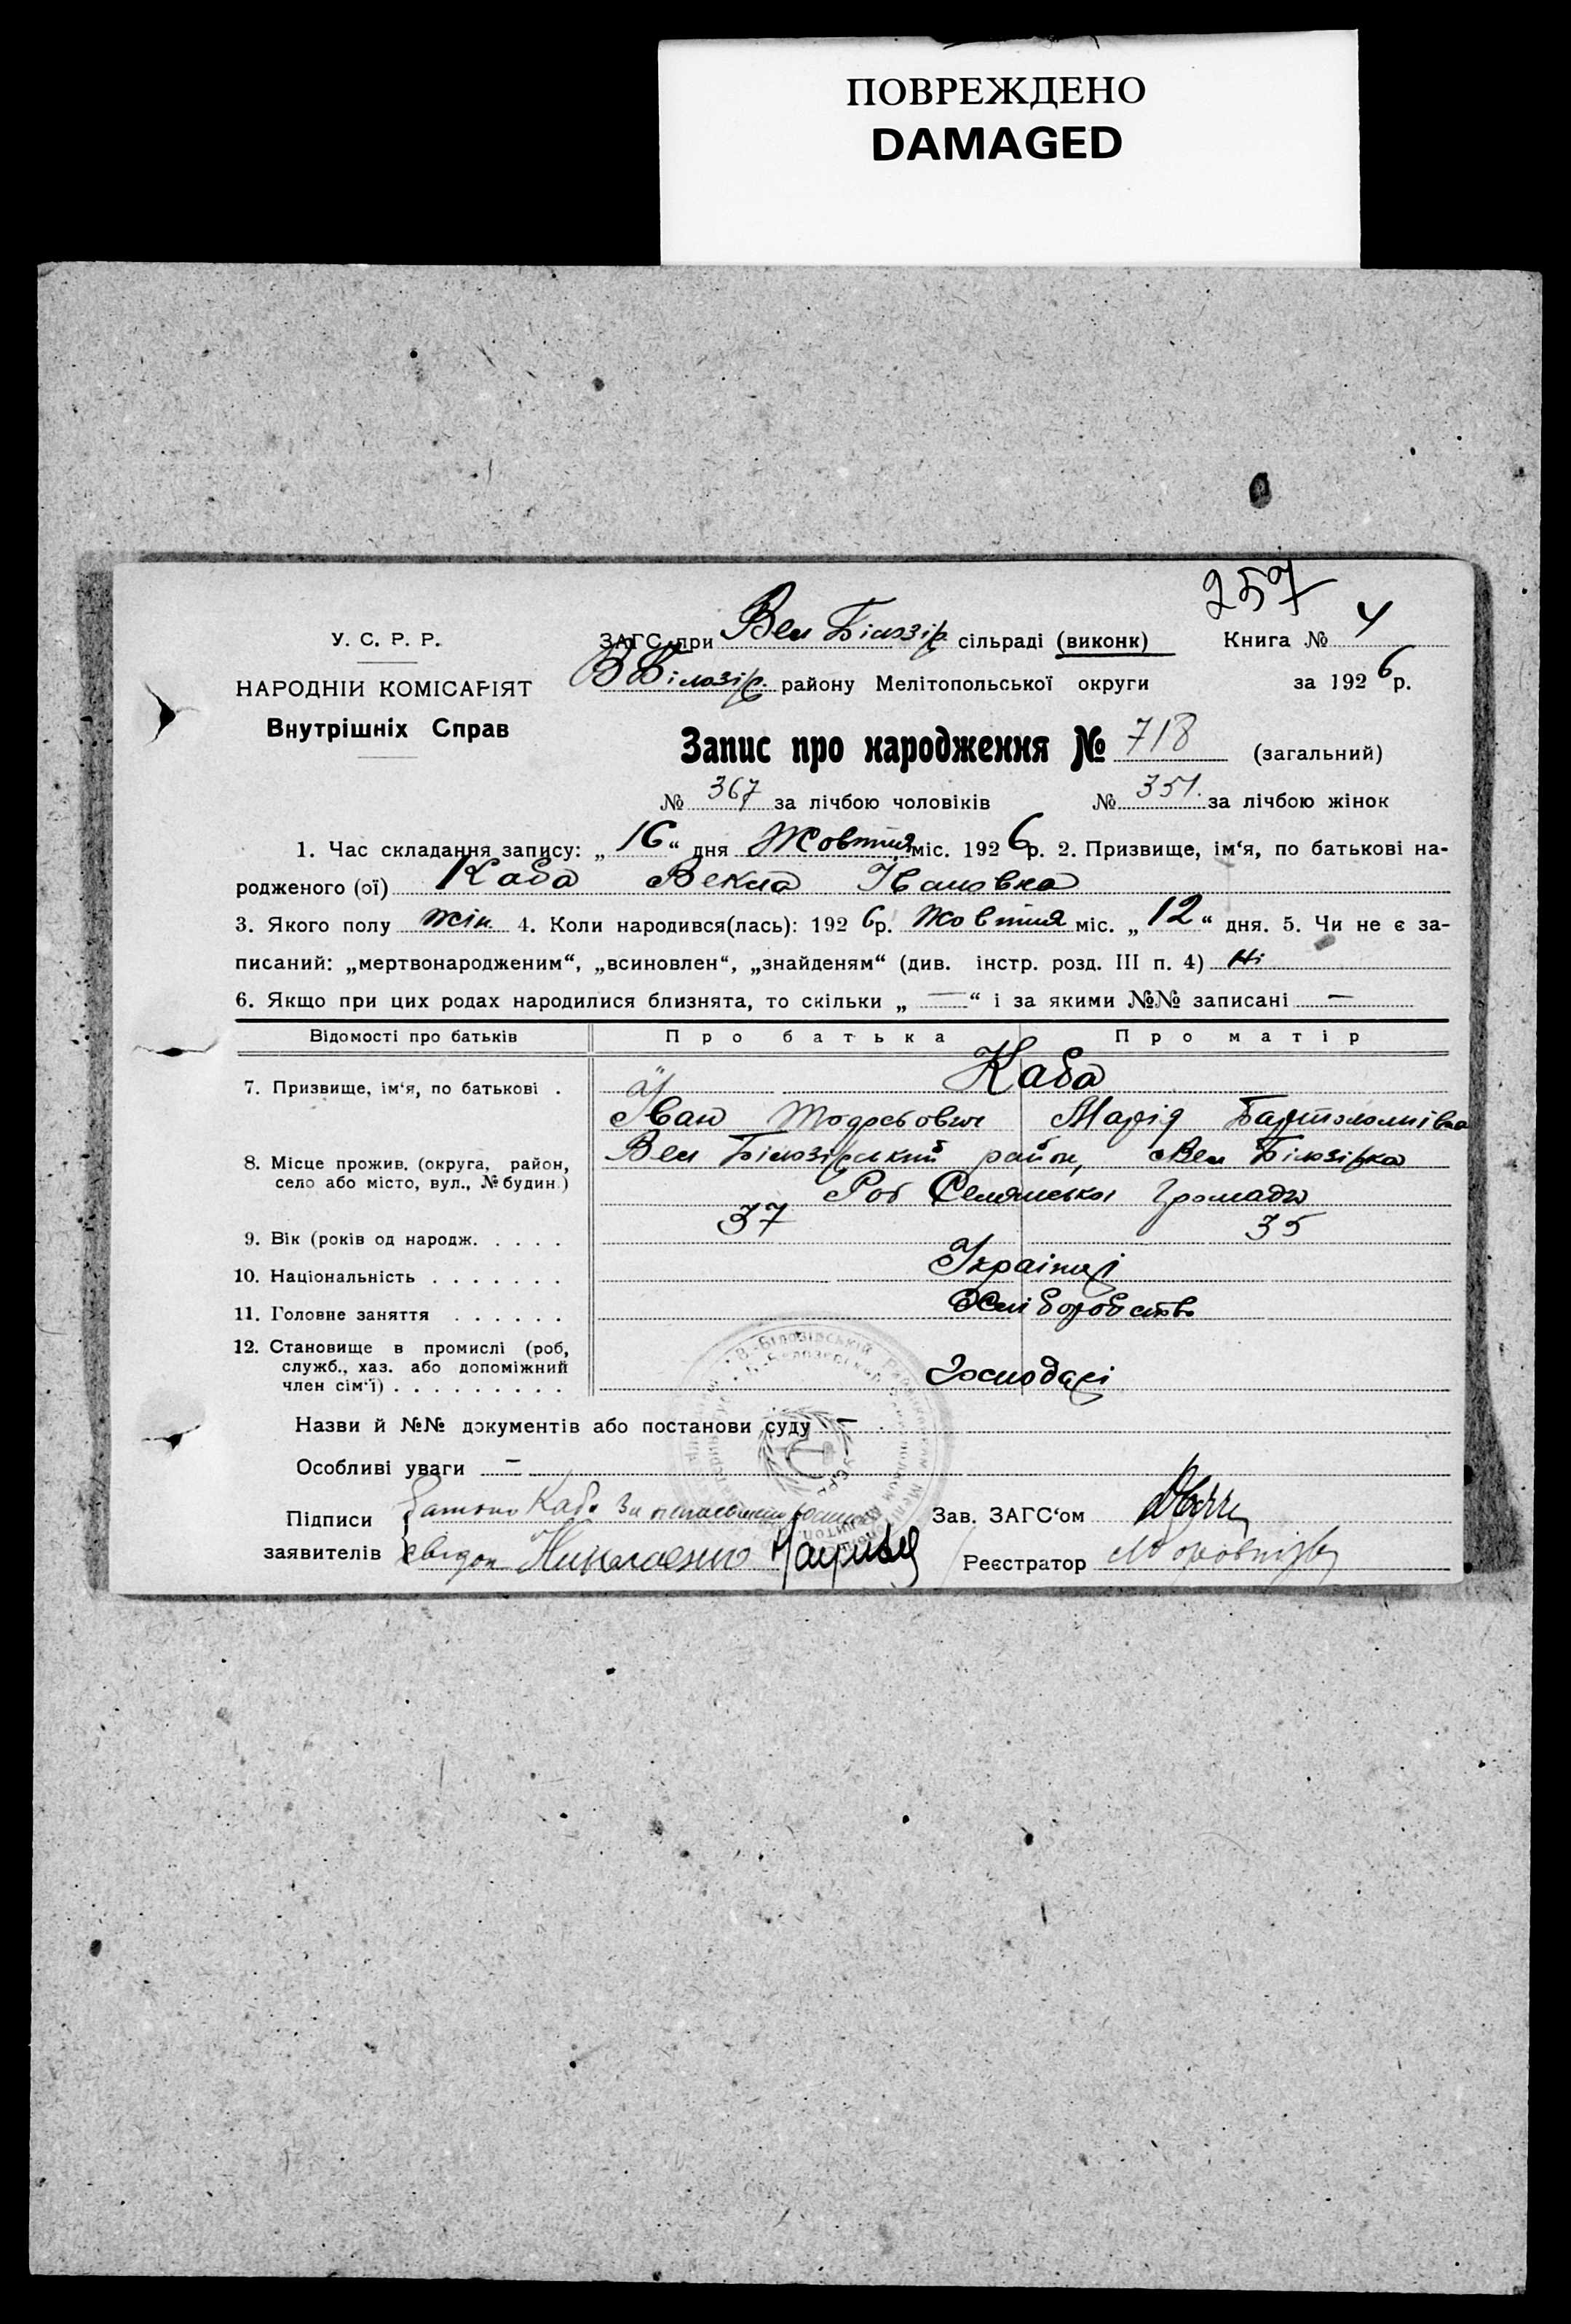 ПОВРЕЖДЕНО
DAMAGED
257
У. С. Р. Р.
ЗАГС при Вел Білозір. сільраді (виконк) Книга № 4
НАРОДНІЙ КОМІСАРІЯТ
В Білозір. району Мелітопольської округи за 1926 р.
Внутрішніх Справ
Запис про народження № 718 (загальний)
№ 367 за лічбою чоловіків № 351. за лічбою жінок
1. Час складання запису: „16“ дня Жовтня міс. 1926 р. 2. Призвище, ім‘я, по батькові на-
родженого (ої) Каба Векла Івановна
3. Якого полу жін. 4. Коли народився(лась): 1926 р. Жовтня міс. „12“ дня. 5. Чи не є за-
писаний: „мертвонародженим“, „всиновлен“, „знайденям“ (див. інстр. розд. III п. 4) Ні
6. Якщо при цих родах народилися близнята, то скільки „ — “ і за якими №№ записані —
Відомості про батьків Про батька Про матір
7. Призвище, ім‘я, по батькові . Каба
Іван Тодосьович Марія Бартоломіївна
8. Місце прожив. (округа, район, село або місто, вул., № будин.) Вел Білозірський район, Вел Білозірка
Селянської Громади
9. Вік (років од народж. . . . . 37 35
10. Національність . . . . . . . Українці
11. Головне заняття . . . . . . Хліборобство
12. Становище в промислі (роб, служб., хаз. або допоміжний член сім‘ї) . . . . . . . . . Господарі
Назви й №№ документів або постанови суду —
Особливі уваги —
Підписи Батько Каба За Зав. ЗАГС‘ом
заявителів свідок Николаенко Реєстратор